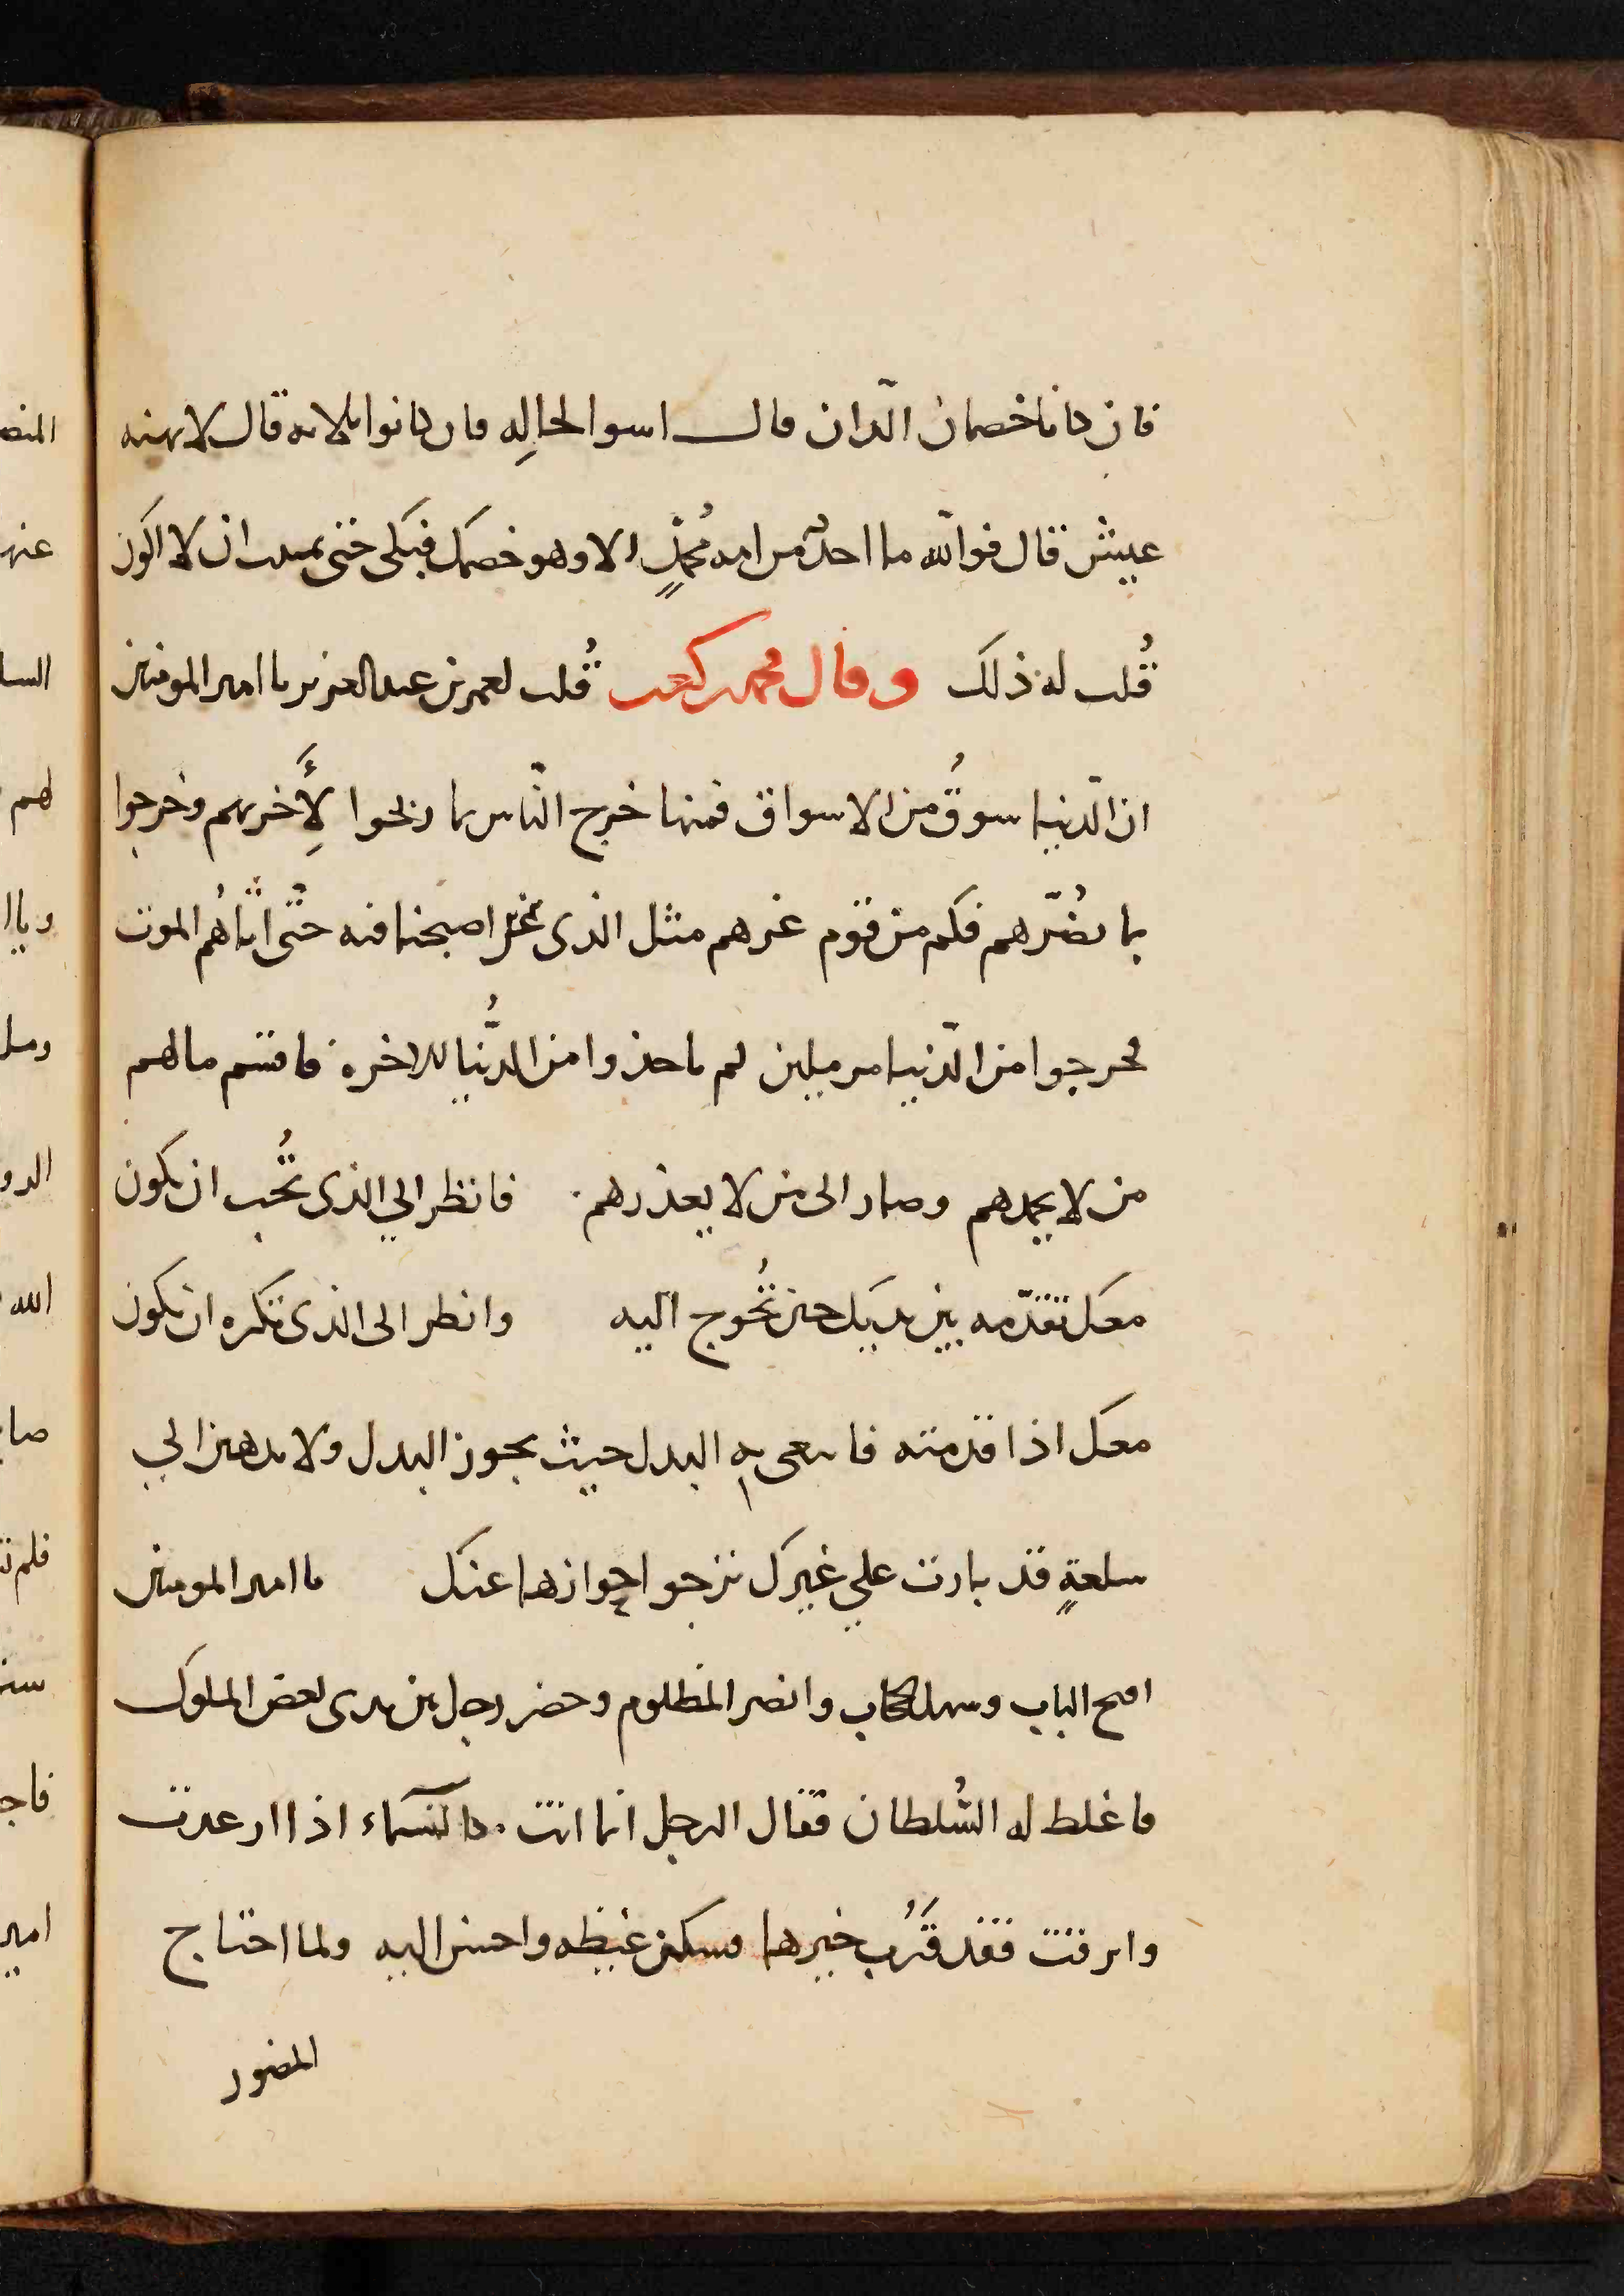 فان كانا خصمان الّدان قال اسوا لحالِه فان كانوا ثلاثه قال لا يهنه
عيش قال فوالله ما احدٌ من امه مُحمّدٍ الا وهو خصمك فبكى حتى تمنيت ان لا اكون
قُلت له ذلك وقال محمد كعب قُلت لعمر بن عبد العزيز يا امير المومنين
ان الّدنيا سوقُ من الاسواق فمنها خرج النّاس بما ربحوا لِأَخرتهم وخرجوا
بما يضُرّهم فكم من قوم غرهم مثل الذي اصبحنا فيه حتّى اتاهُم الموت
فخرجوا من الّدنيا مرملين لم ياخذوا من الدُّنيا للاخرة فاقتسم مالهم
من لا يحمدهم وصار الى من لا يعذرهم فانظر الي الذى تُحب ان يكون
معك تقدّمه بين يديك حين تُخرج اليه وانظر الى الذى تكره ان يكون
معك اذا قدمته فابتغى به البدل حيث يجوز البدل ولا تذهبن الي
سلعةٍ قد بارت علي غيرك ترجوا جوازها عنك يا امير المومنين
افتح الباب وسهل الحجاب وانصر المظلوم وحضر رجل بين يدى بعض الملوك
فاغلظ له السُّلطان فقال الرجل انما انت كالسَّماء اذا ارعدت
وابرقت فقد قَرُب خيرها فسكن غيظه واحسن اليه ولما احتاج
المنصور